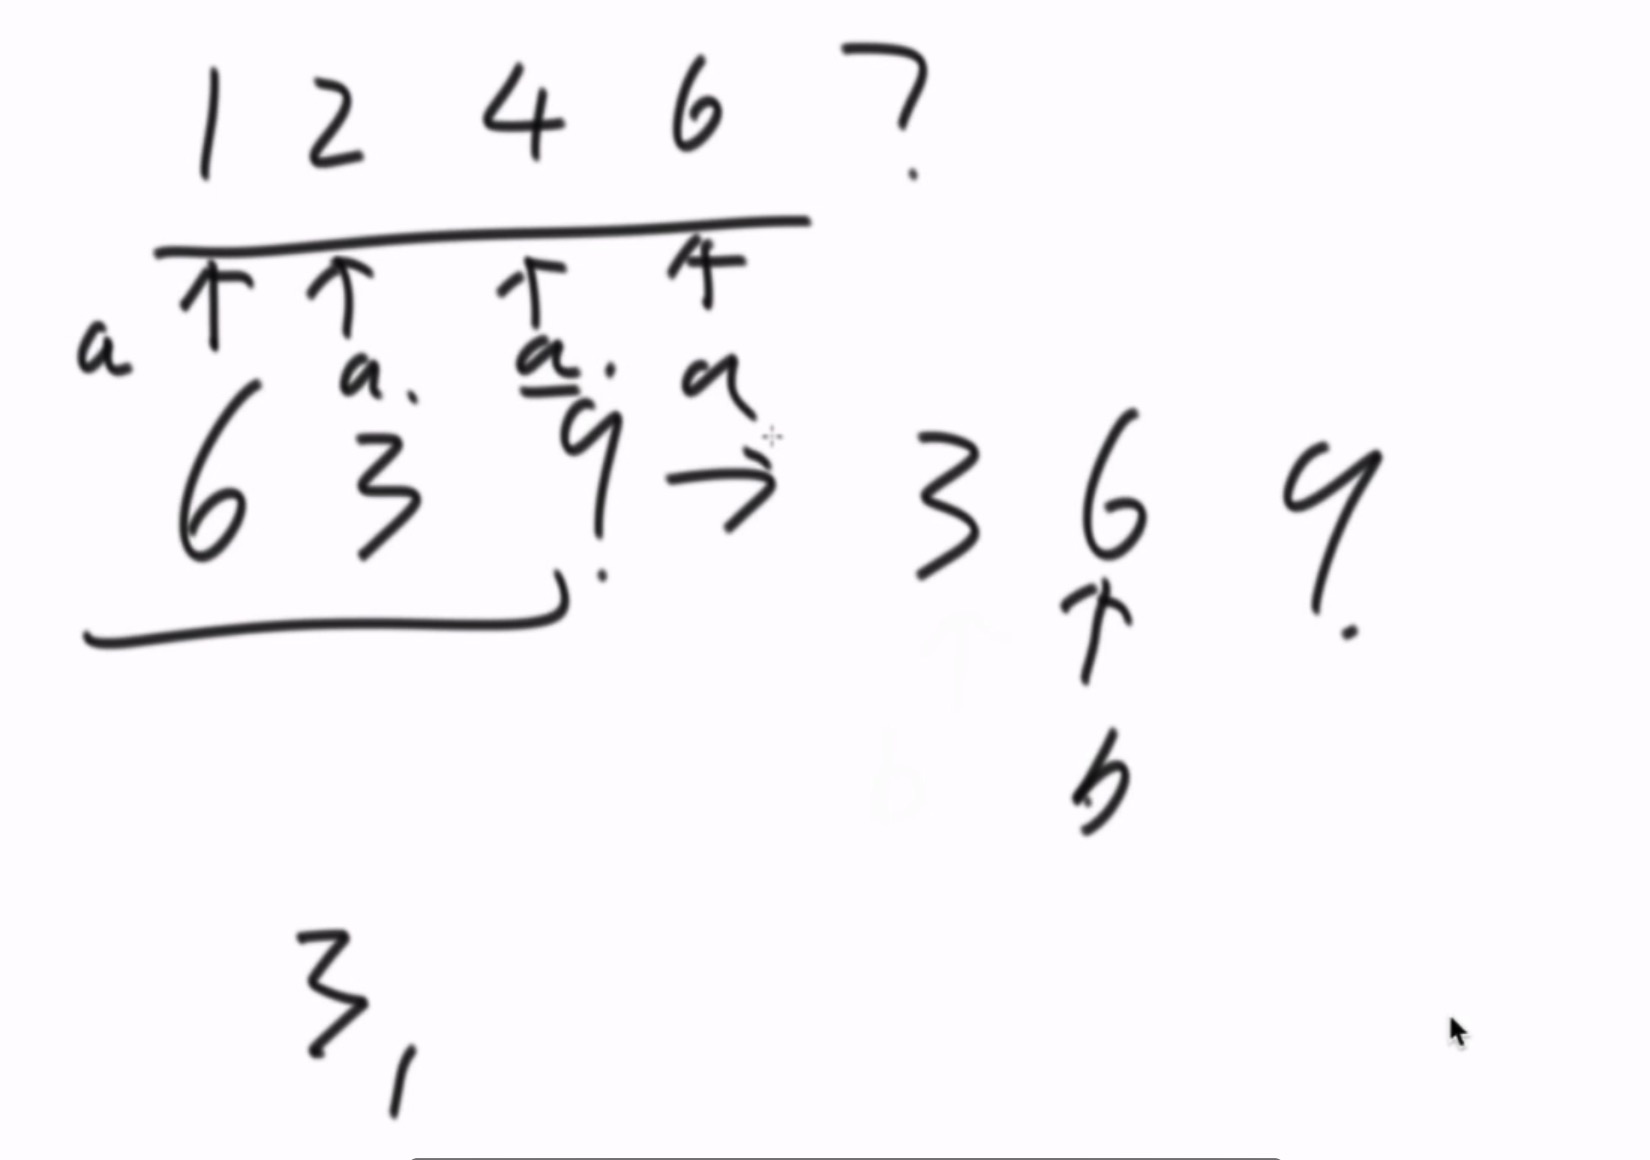 1 2 4 6 ?
↑ ↑ ↑ ↑
a a. a. a
6 3 9. → 3 6 9.
↑
b
3,